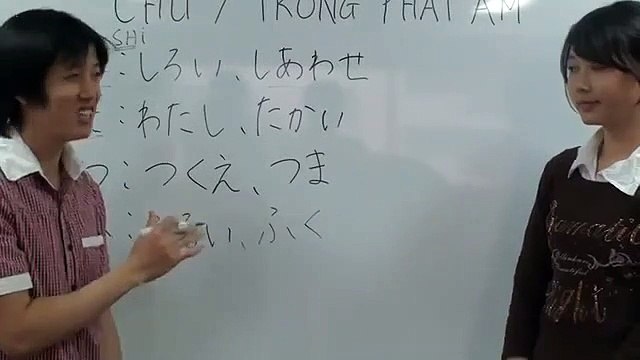 CHÚ Ý TRONG PHÁT ÂM
SHi
: しろい、しあわせ
: わたし、たかい
つ : つくえ、つま
: 、ふく